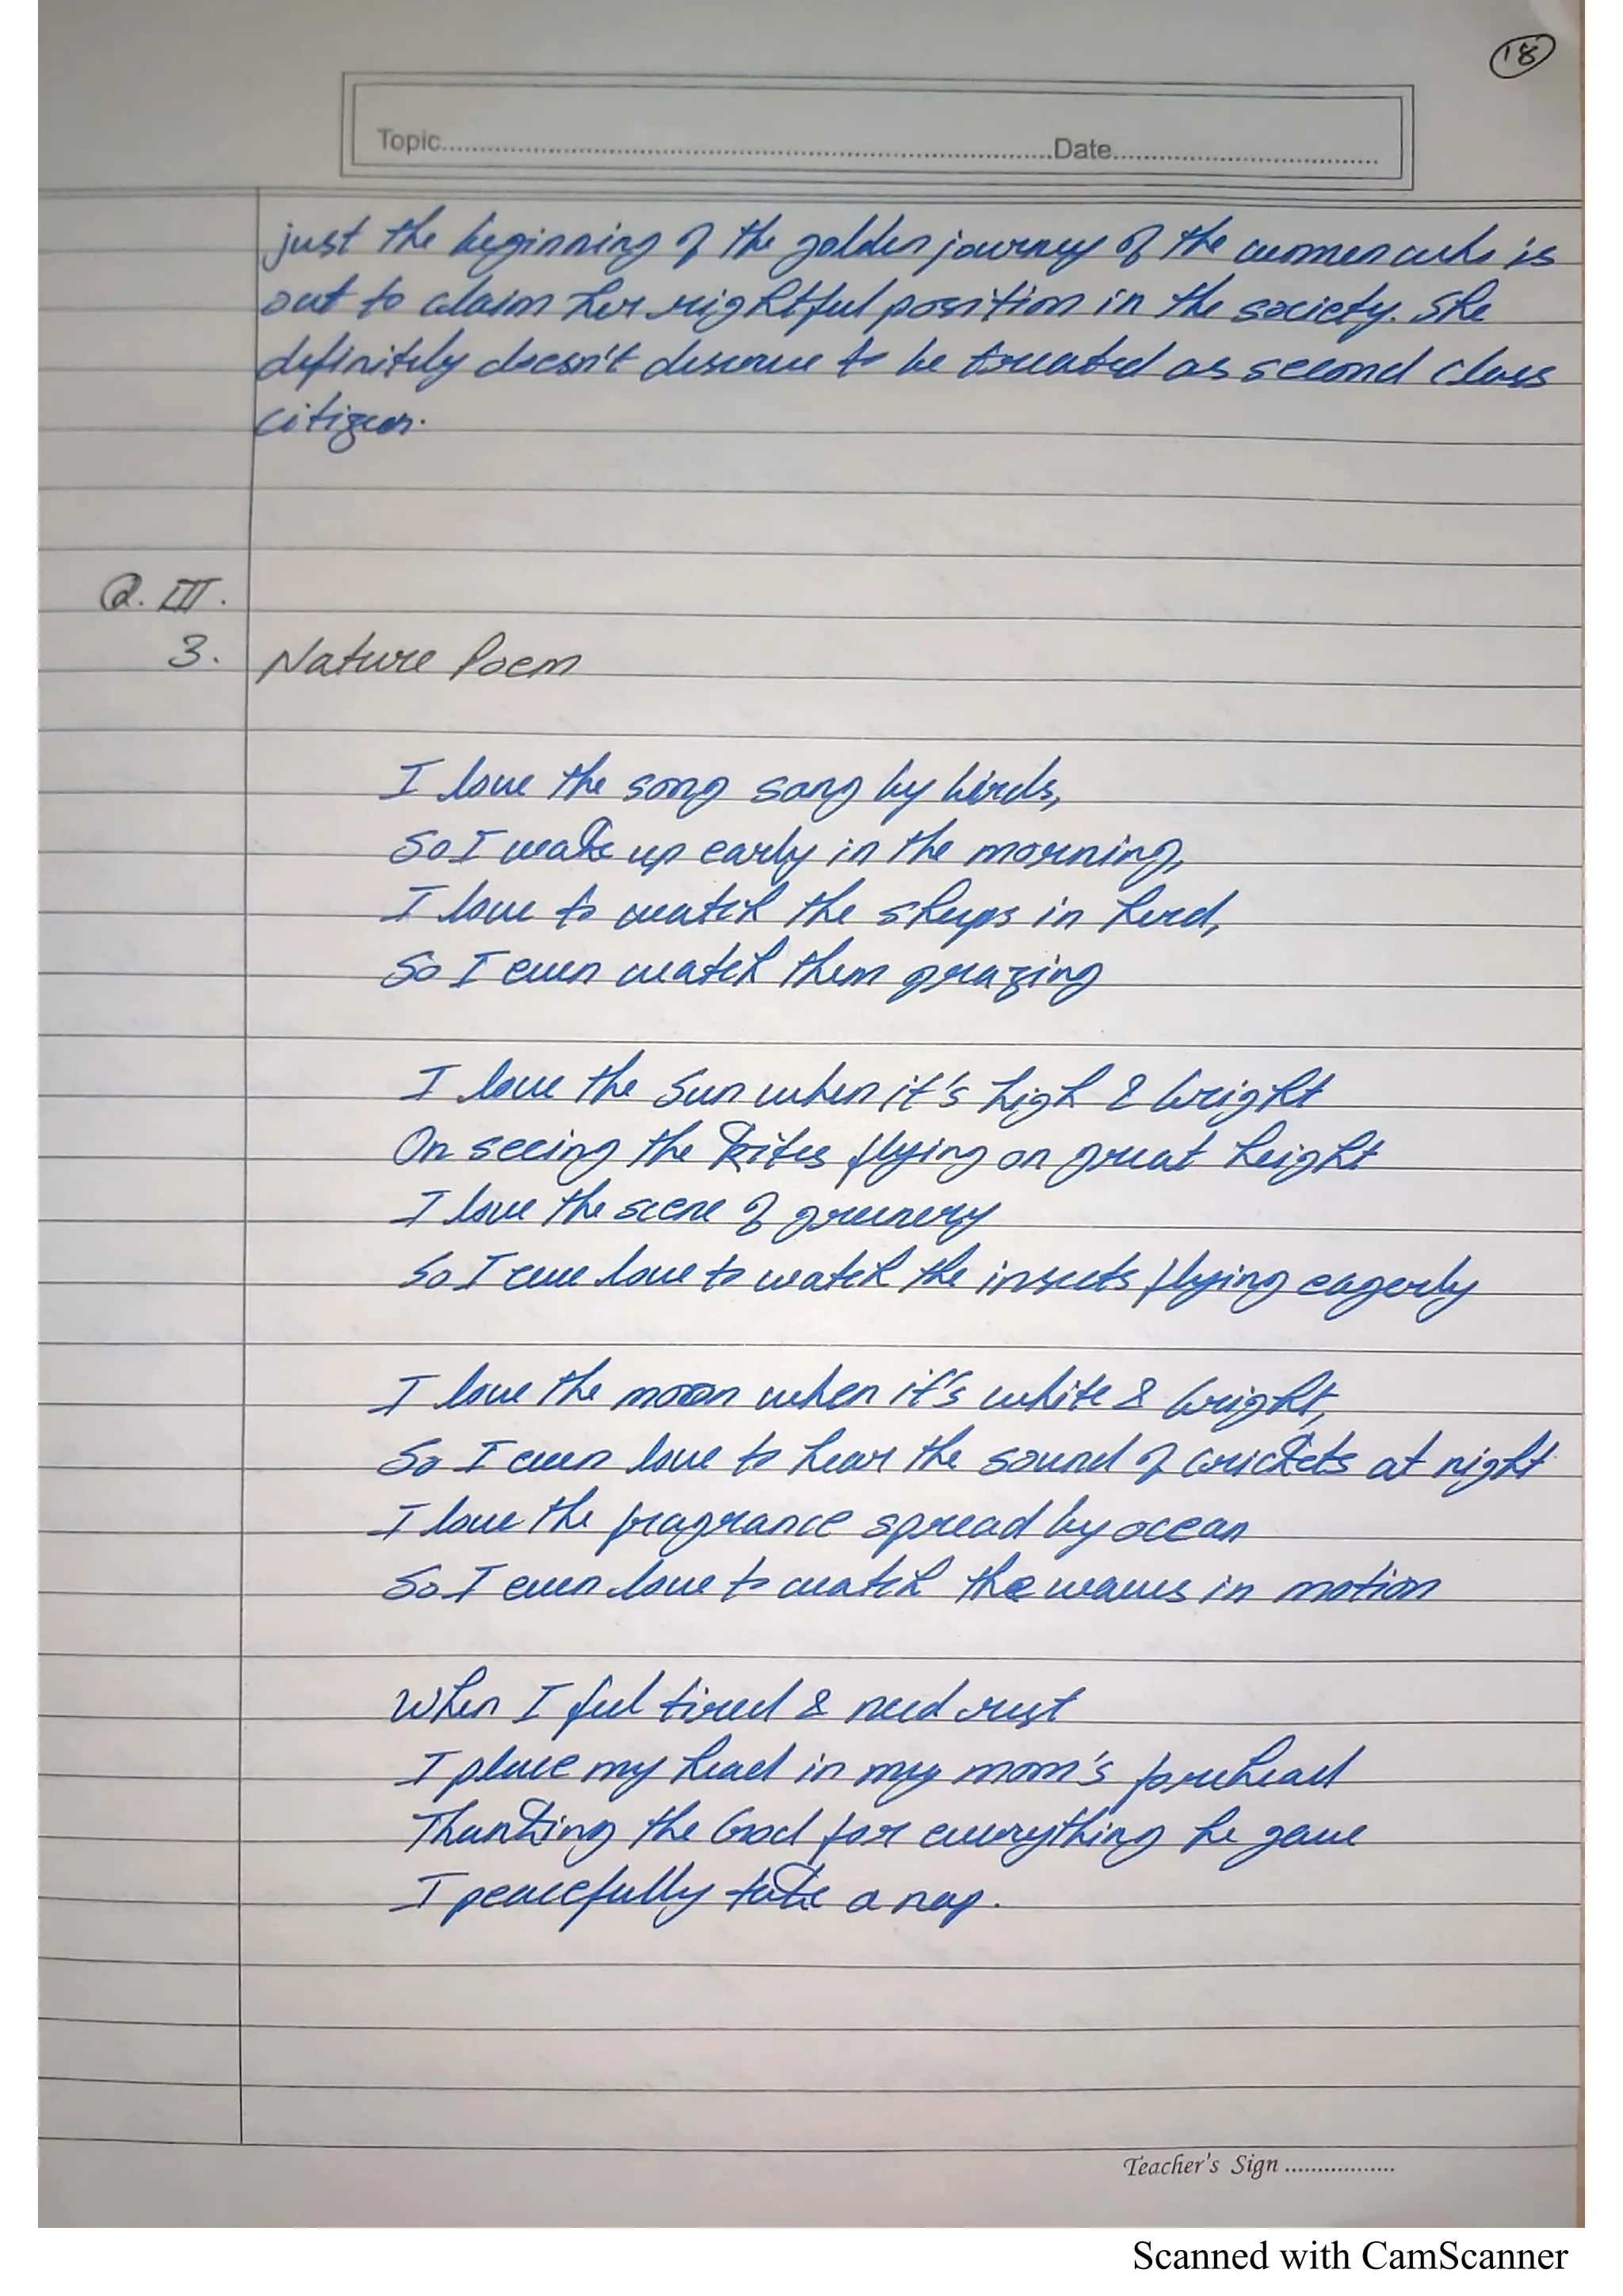 18
Topic..........Date..........
just the beginning of the golden journey of the women who is
out to claim her rightful position in the society. She
definitely doesn't deserve to be treated as second class
citizen.
Q. III.
3. Nature Poem
I love the song sang by birds,
So I wake up early in the morning,
I love to watch the sheeps in herd,
So I even watch them grazing
I love the Sun when it's high & bright
On seeing the kites flying on great height
I love the scene of greenery
So I eve love to watch the insects flying eagerly
I love the moon when it's white & bright,
So I even love to hear the sound of crickets at night
I love the fragrance spread by ocean
So I even love to watch the waves in motion
When I feel tired & need rest
I place my head in my mom's forehead
Thanking the God for everything he gave
I peacefully take a nap.
Teacher's Sign ..................
Scanned with CamScanner